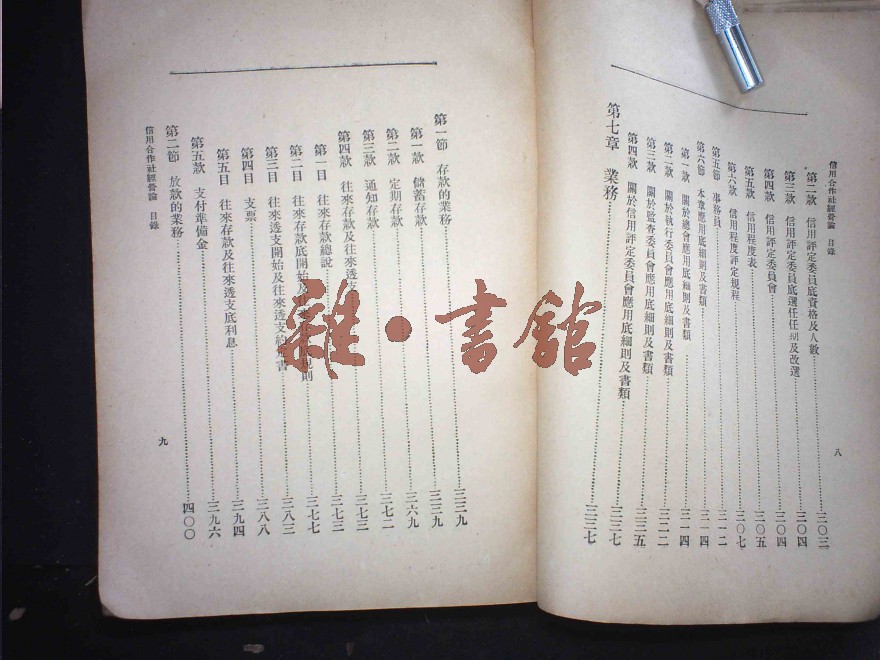 信用合作社經營論　目錄
第二款　信用評定委員底資格及人數……三〇三
第三款　信用評定委員底選任任期及改選……三〇四
第四款　信用評定委員會……三〇四
第五款　信用程度表……三〇五
第六款　信用程度評定規程……三〇七
第五節　事務員……三一二
第六節　本章應用底細則及書類……三一四
第一款　關於總會應用底細則及書類……三一四
第二款　關於執行委員會應用底細則及書類……三二二
第三款　關於監查委員會應用底細則及書類……三三五
第四款　關於信用評定委員會應用底細則及書類……三三七
第七章　業務……三三七
八
第一節　存款的業務……三三九
第一款　儲蓄存款……三三九
第二款　定期存款……三六九
第三款　通知存款……三七二
第四款　往來存款及往來透支……三七三
第一目　往來存款總說……三七三
第二目　往來存款底開始及往來……規則……三七七
第三目　往來透支開始及往來透支……書……三八三
第四目　支票……三八八
第五目　往來存款及往來透支底利息……三九四
第五款　支付準備金……三九六
第二節　放款的業務……四〇〇
信用合作社經營論　目錄
九
雜·書館